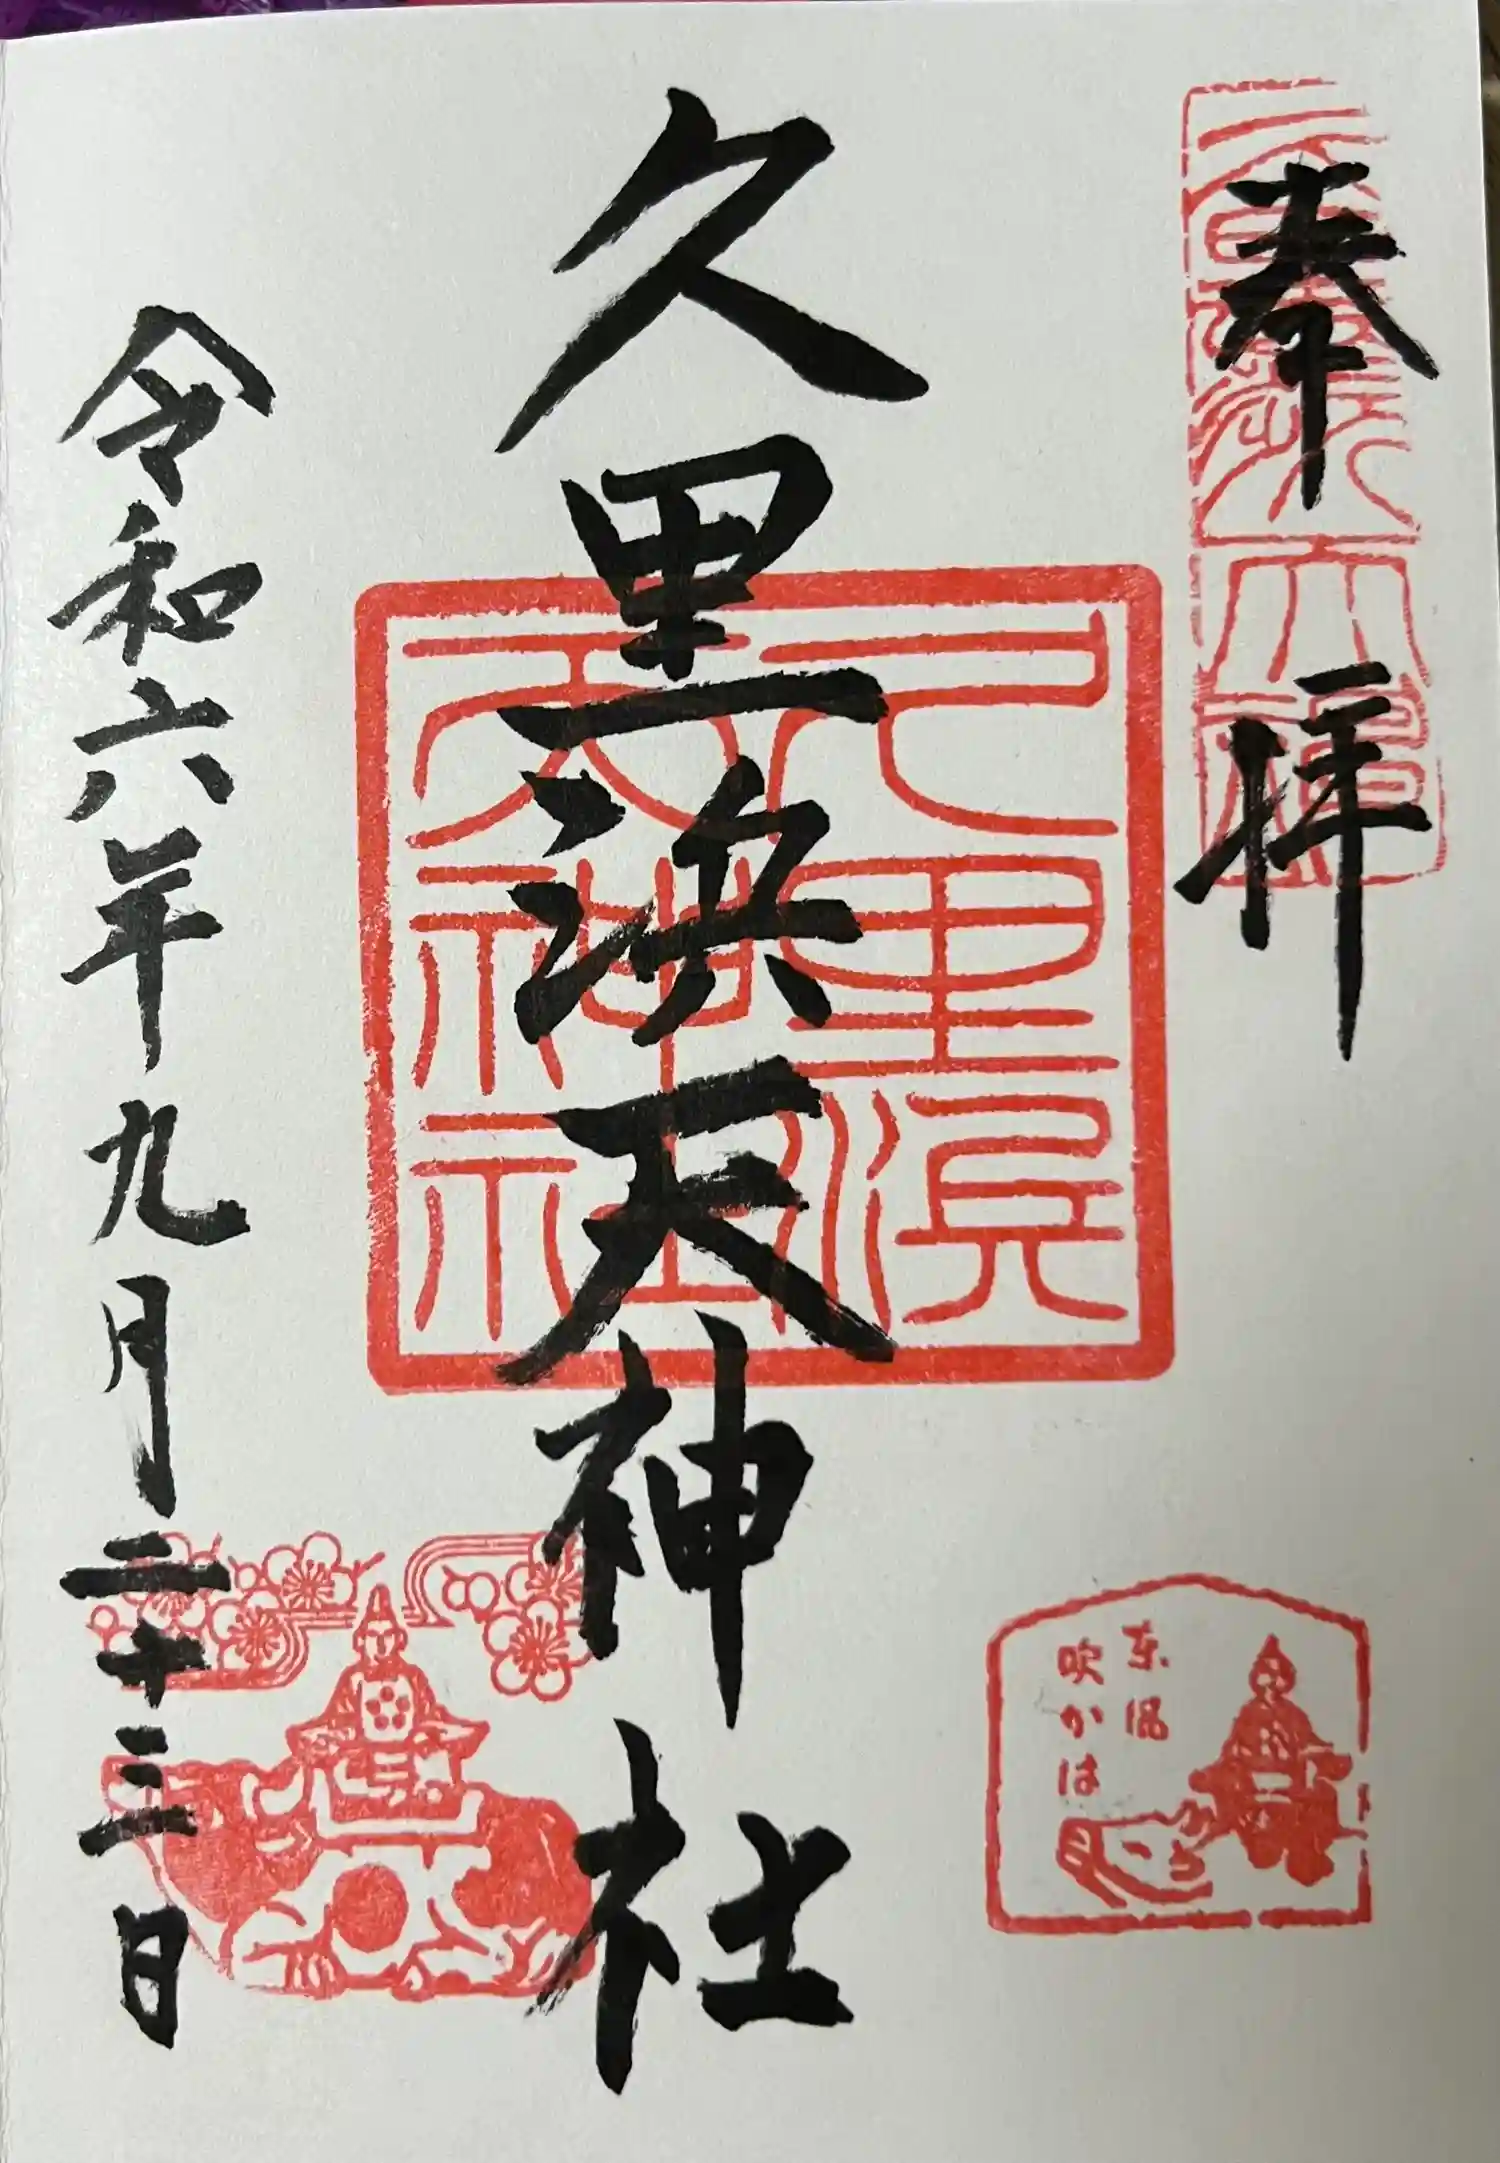 奉拝
久里浜天神社
久里浜
天神社
東風
吹かは
令和六年九月二十三日